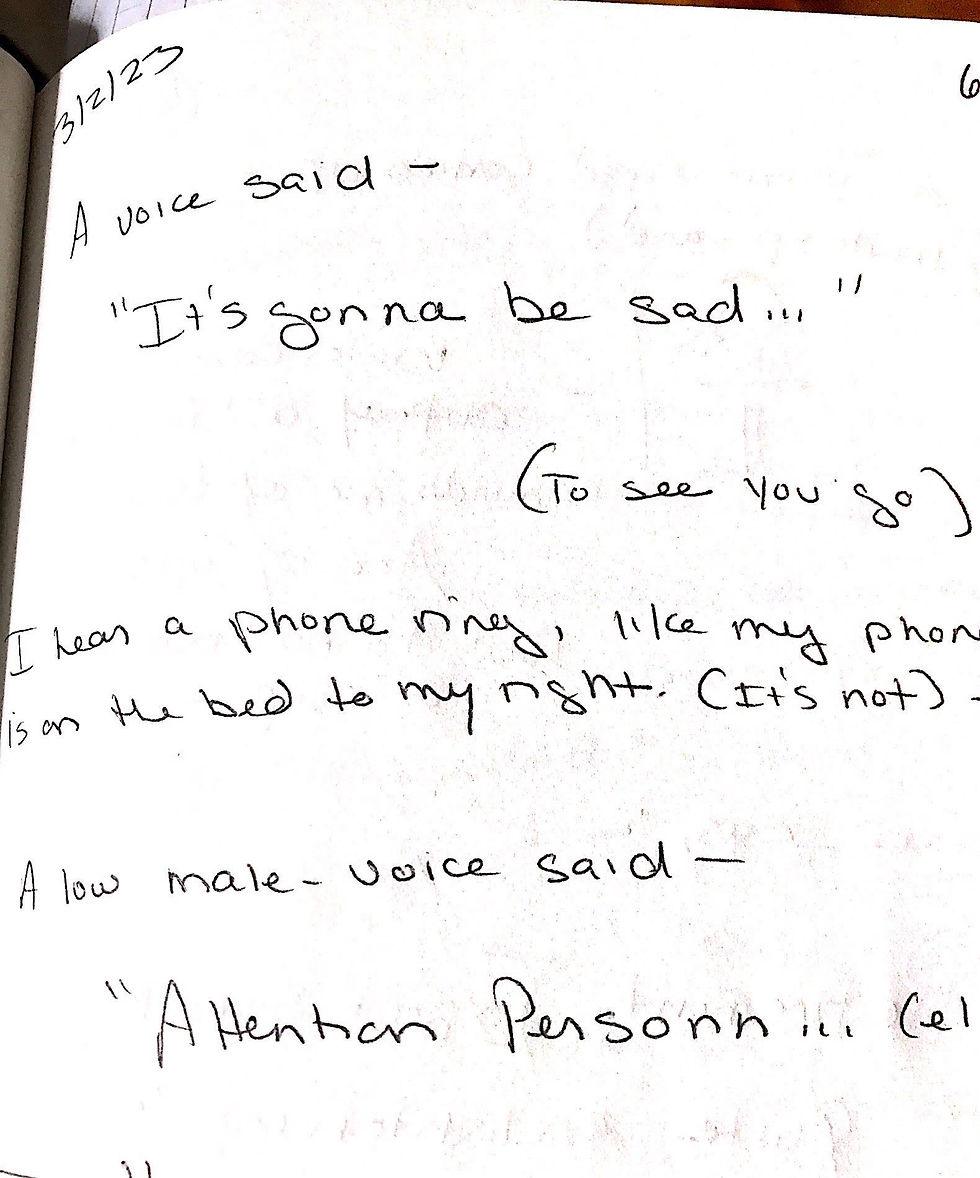 3/2/23
6
A voice said -
"It's gonna be sad..."
(To see you go)
I hear a phone ring, like my phon
is on the bed to my right. (It's not) -
A low male - voice said -
"Attention Personn... (el